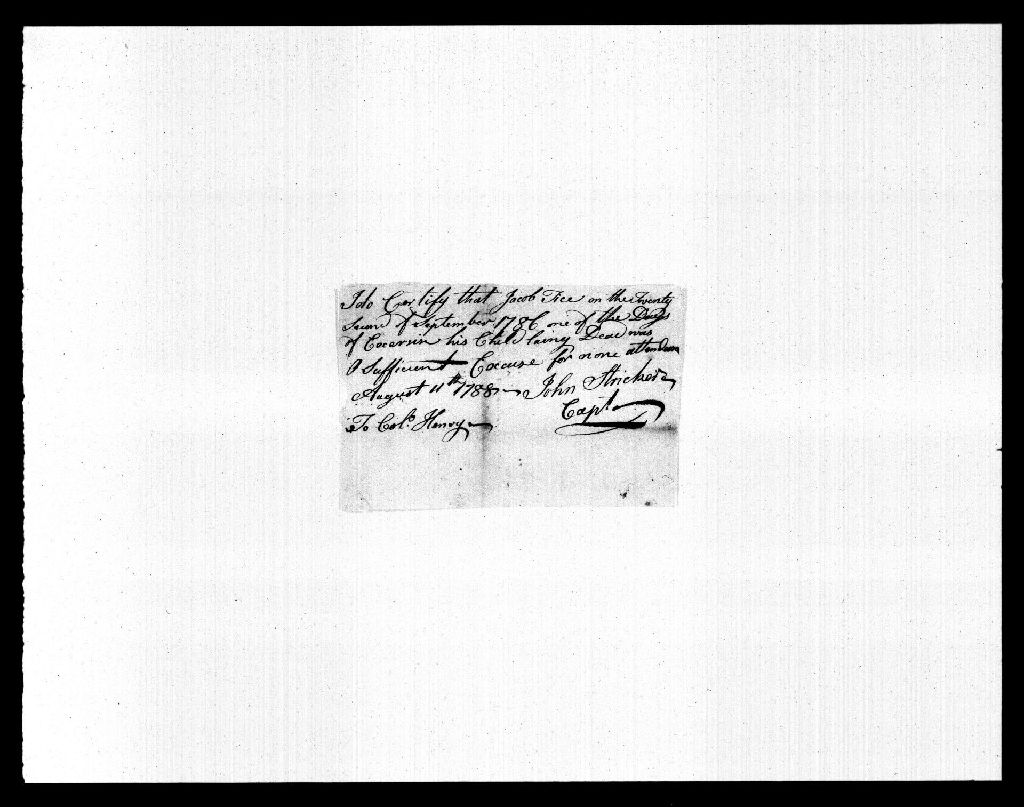 I do Certify that Jacob Tice on the Twenty
Secand of September 1786 one of the Days
of Excersin his Child laing Dead was
A Sufficient Excuse for none attendan
August 11th 1788 John Stricker
Capt
To Col.o Henry